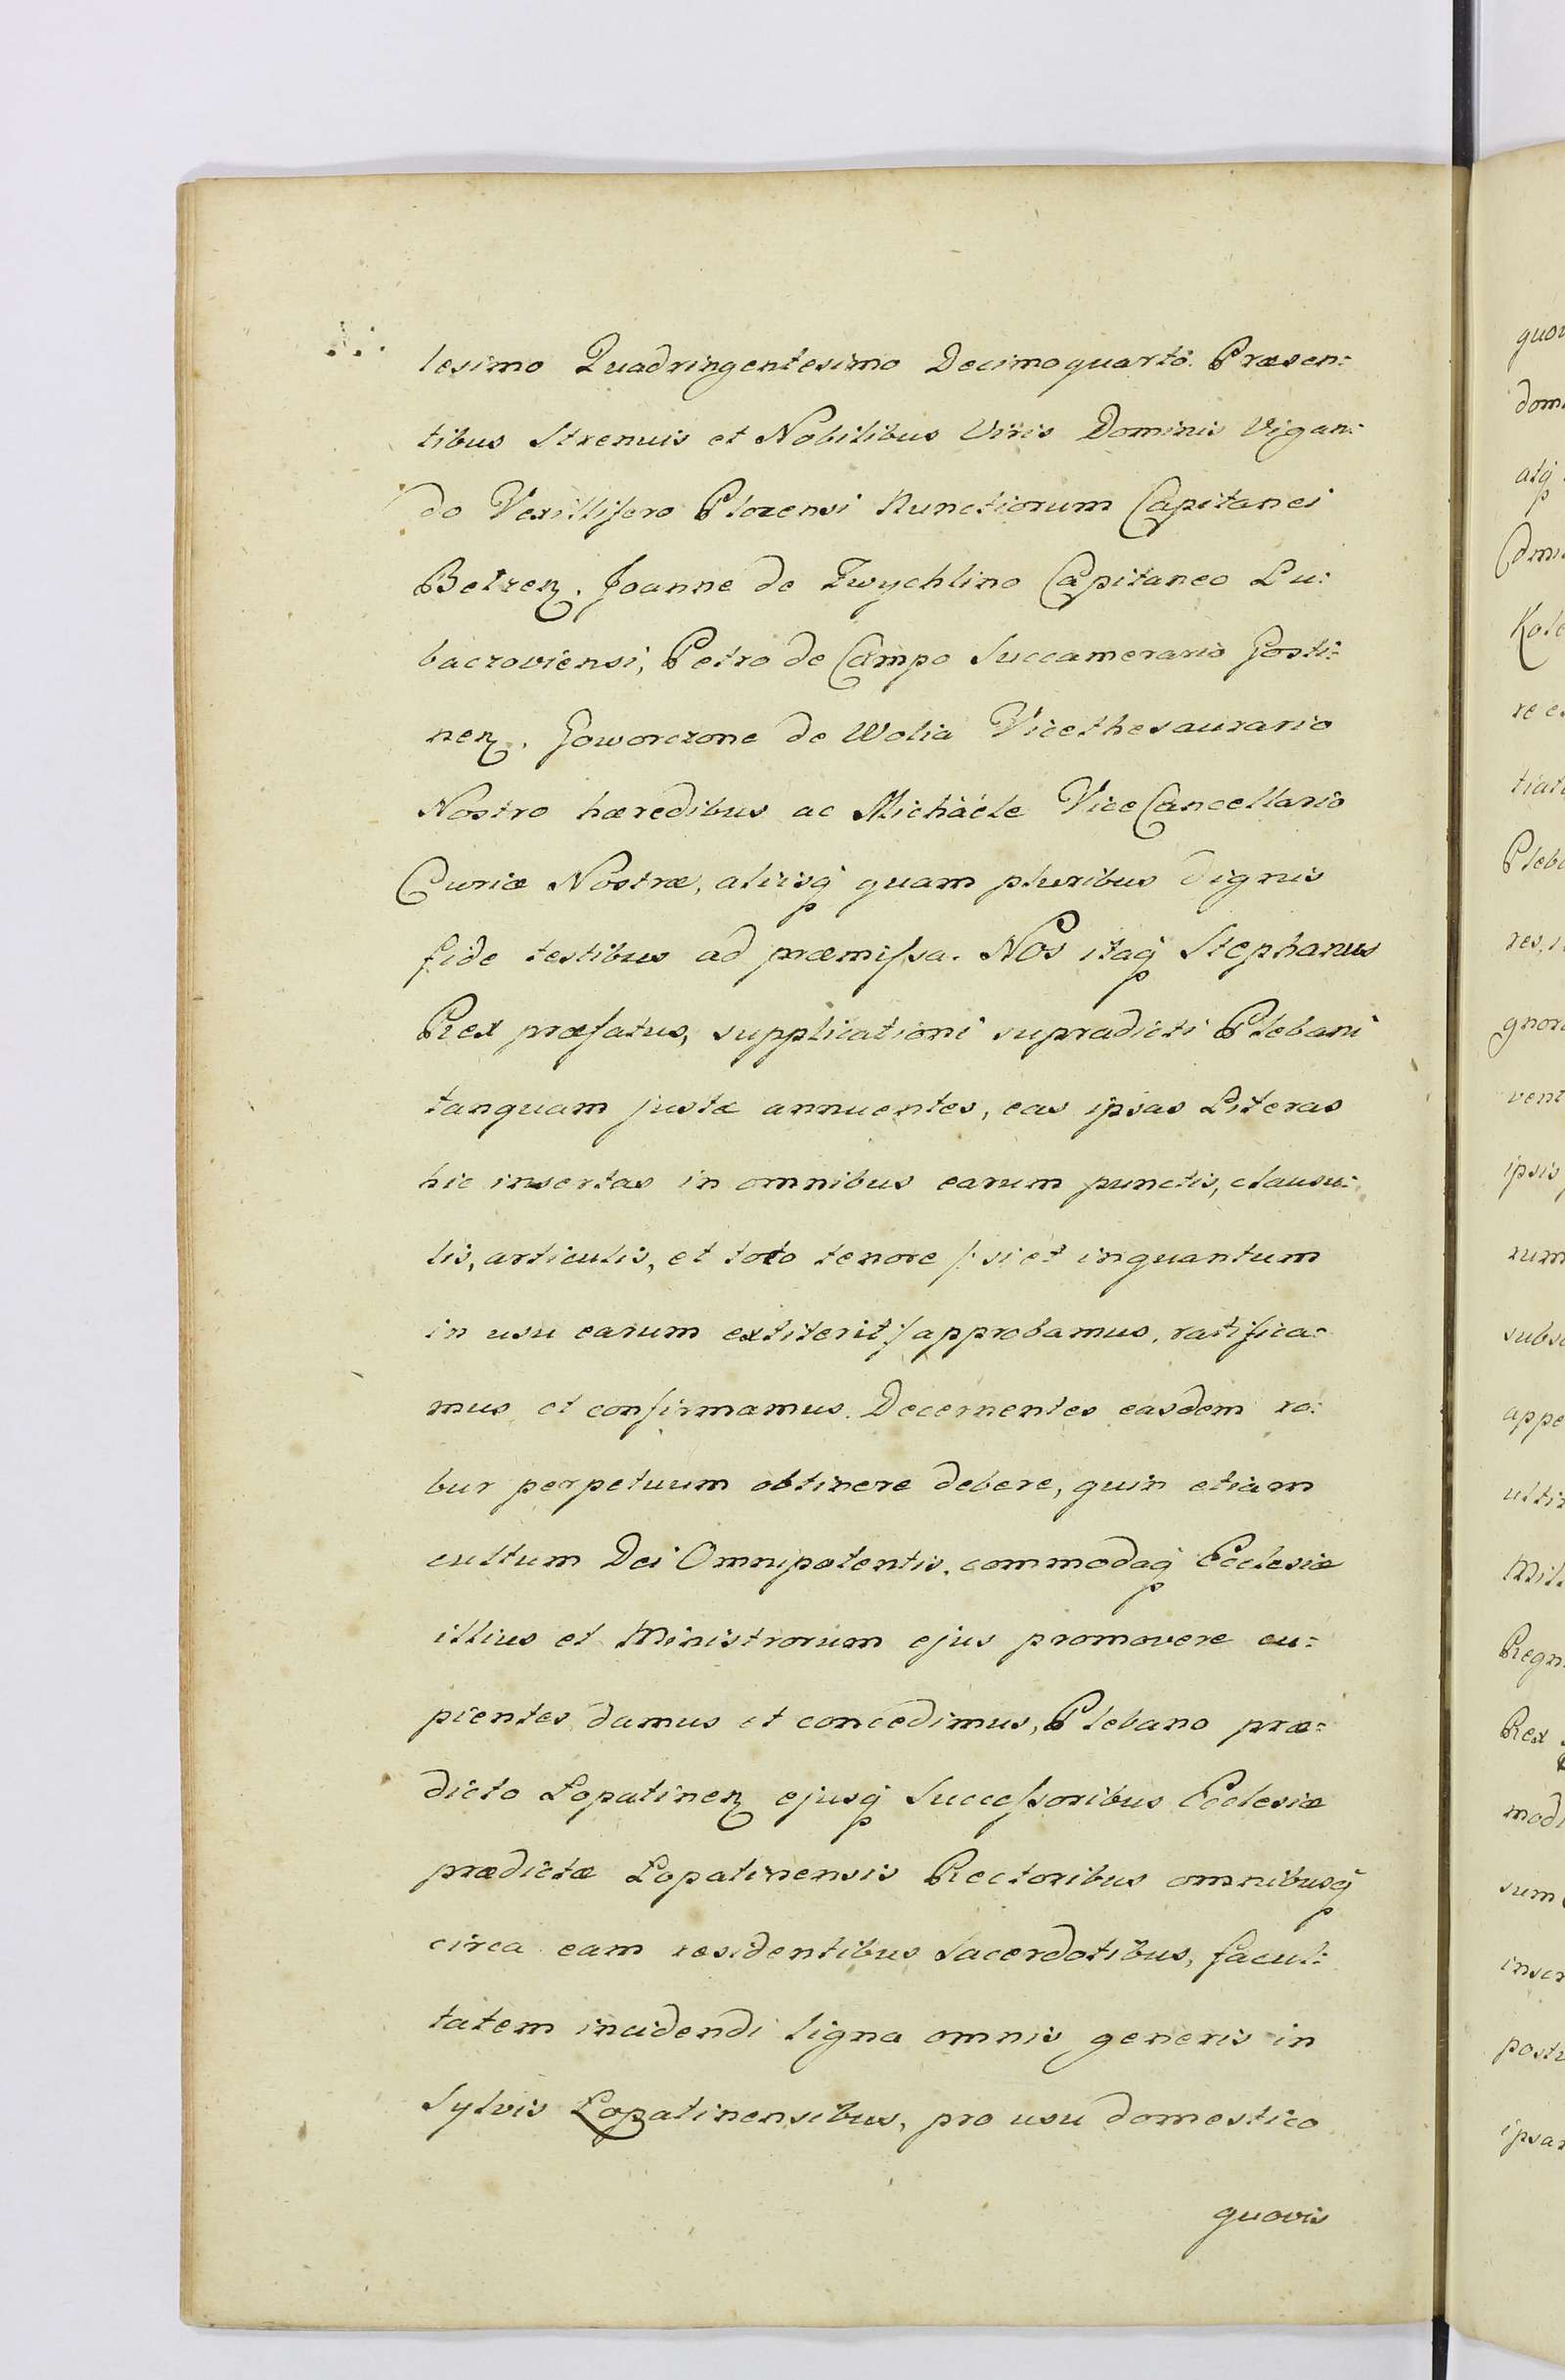 lesimo Quadringentesimo Decimoquarto. Præsen:
tibus Strenuis et Nobilibus Viris Dominis Vigan:
do Vexillifero Plozensi Nunctiorum Capitanei
Belzen̄. Joanne de Zwychlino Capitaneo Lu:
baczoviensi, Petro de Campo Succamerario Gosti:
nen̄. Goworczone de Wolia Vicethesaurario
Nostro hæredibus ac Michaéle ViceCancellario
Curiæ Nostræ, aliisq́ quam pluribus dignis
fide testibus ad præmissa. Nos itaq́ Stephanus
Rex præfatus, supplicationi supradicti Plebani
tanquam justæ annuentes, eas ipsas Literas
hic insertas in omnibus earum punctis, clausu:
lis, articulis, et toto tenore /: si et inquantum
in usu earum extiterit :/ approbamus, ratifica:
mus et confirmamus. Decernentes easdem ro:
bur perpetuum obtinere debere, quin etiam
cultum Dei Omnipotentis, commodaq́ Ecclesiæ
illius et Ministrorum ejus promovere cu:
pientes, damus et concedimus, Plebano præ:
dicto Lopatinen̄ ejusq́ Successoribus Ecclesiæ
prædictæ Lopatinensis Rectoribus omnibusq́
circa eam residentibus Sacerdotibus, facul:
tatem incidendi ligna omnis generis in
Sylvis Lopatinensibus, pro usu domestico
quovis